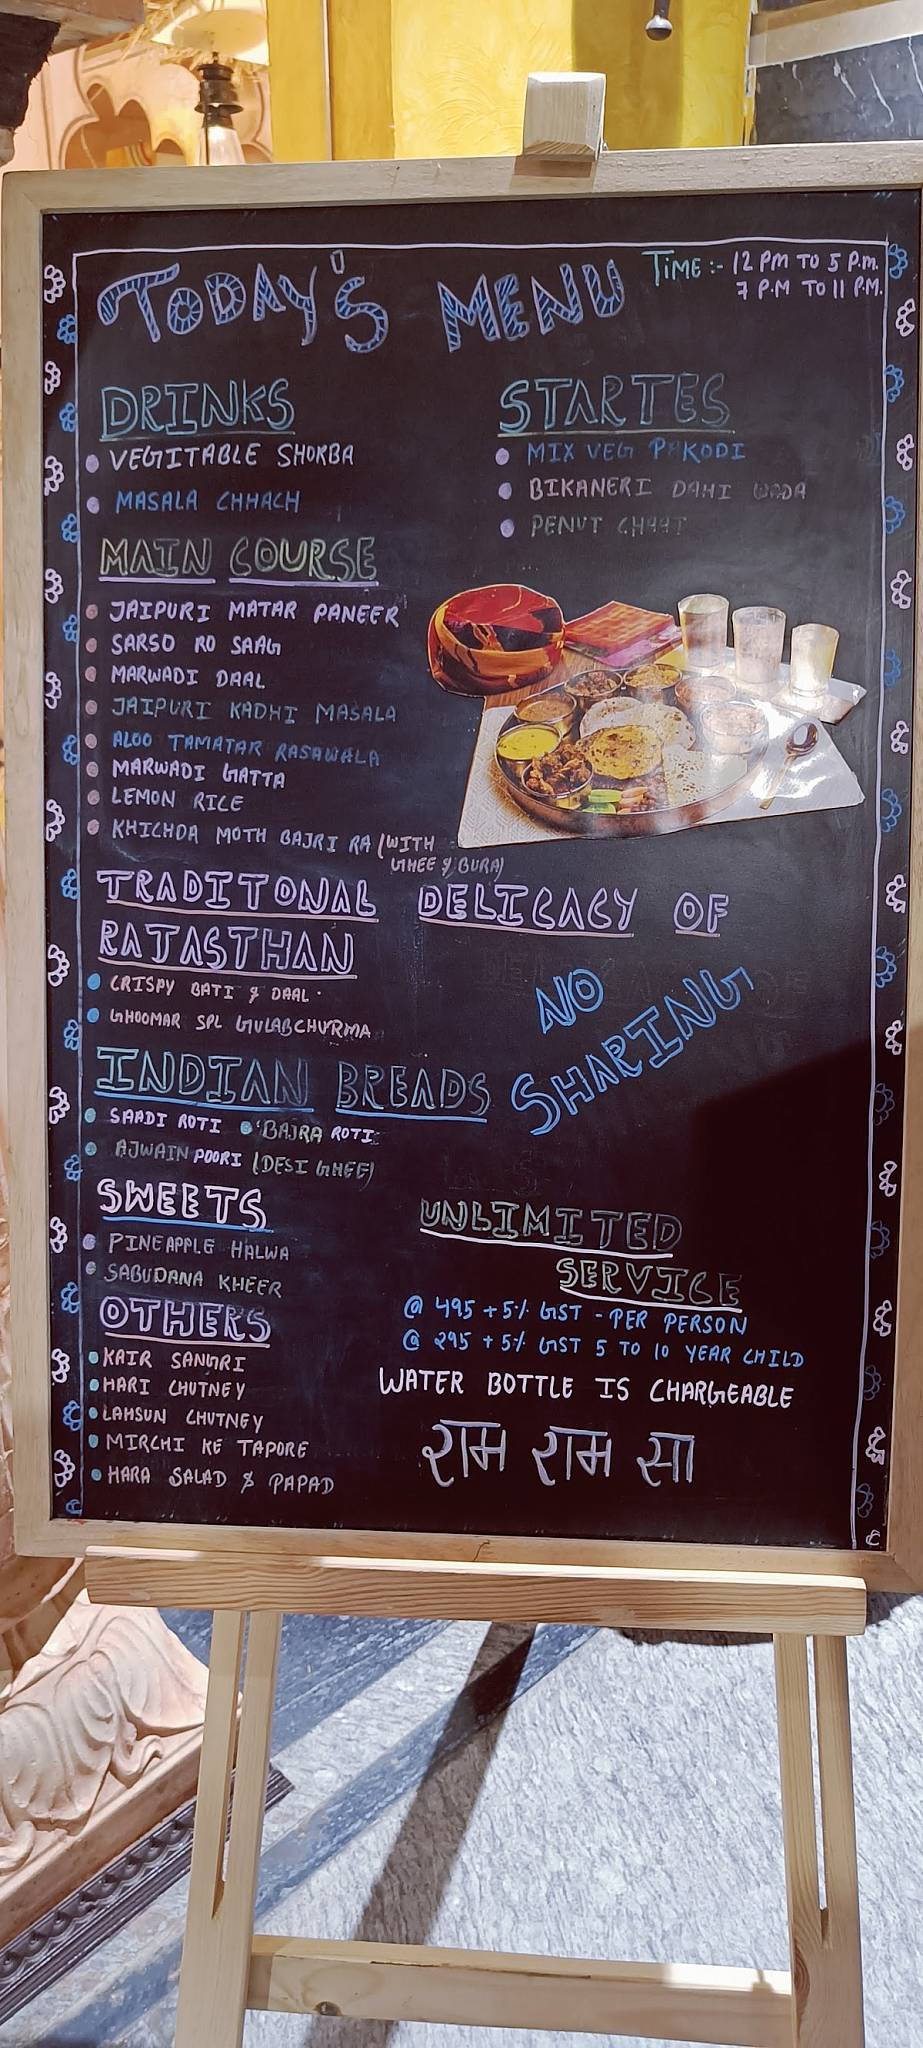 TODAY'S MENU
TIME :- 12 PM TO 5 P.M.
7 P.M TO 11 P.M.
DRINKS
• VEGITABLE SHORBA
• MASALA CHHACH
STARTES
• MIX VEG PAKODI
• BIKANERI DAHI WADA
• PENUT CHAAT
MAIN COURSE
• JAIPURI MATAR PANEER
• SARSO RO SAAG
• MARWADI DAAL
• JAIPURI KADHI MASALA
• ALOO TAMATAR RASAWALA
• MARWADI GATTA
• LEMON RICE
• KHICHDA MOTH BAJRI RA (WITH
GHEE & BURA)
TRADITONAL DELICACY OF
RAJASTHAN
• CRISPY BATI & DAAL
• GHOOMAR SPL GULABCHURMA
NO
SHARING
INDIAN BREADS
• SAADI ROTI • BAJRA ROTI
• AJWAIN POORI (DESI GHEE)
SWEETS
• PINEAPPLE HALWA
• SABUDANA KHEER
OTHERS
• KAIR SANGRI
• HARI CHUTNEY
• LAHSUN CHUTNEY
• MIRCHI KE TAPORE
• HARA SALAD & PAPAD
UNLIMITED
SERVICE
@ 495 + 5% GST - PER PERSON
@ 295 + 5% GST 5 TO 10 YEAR CHILD
WATER BOTTLE IS CHARGEABLE
राम राम सा